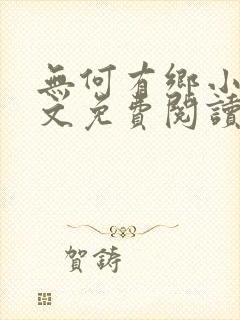 無何有鄉小
文免費閱讀
賀鑄